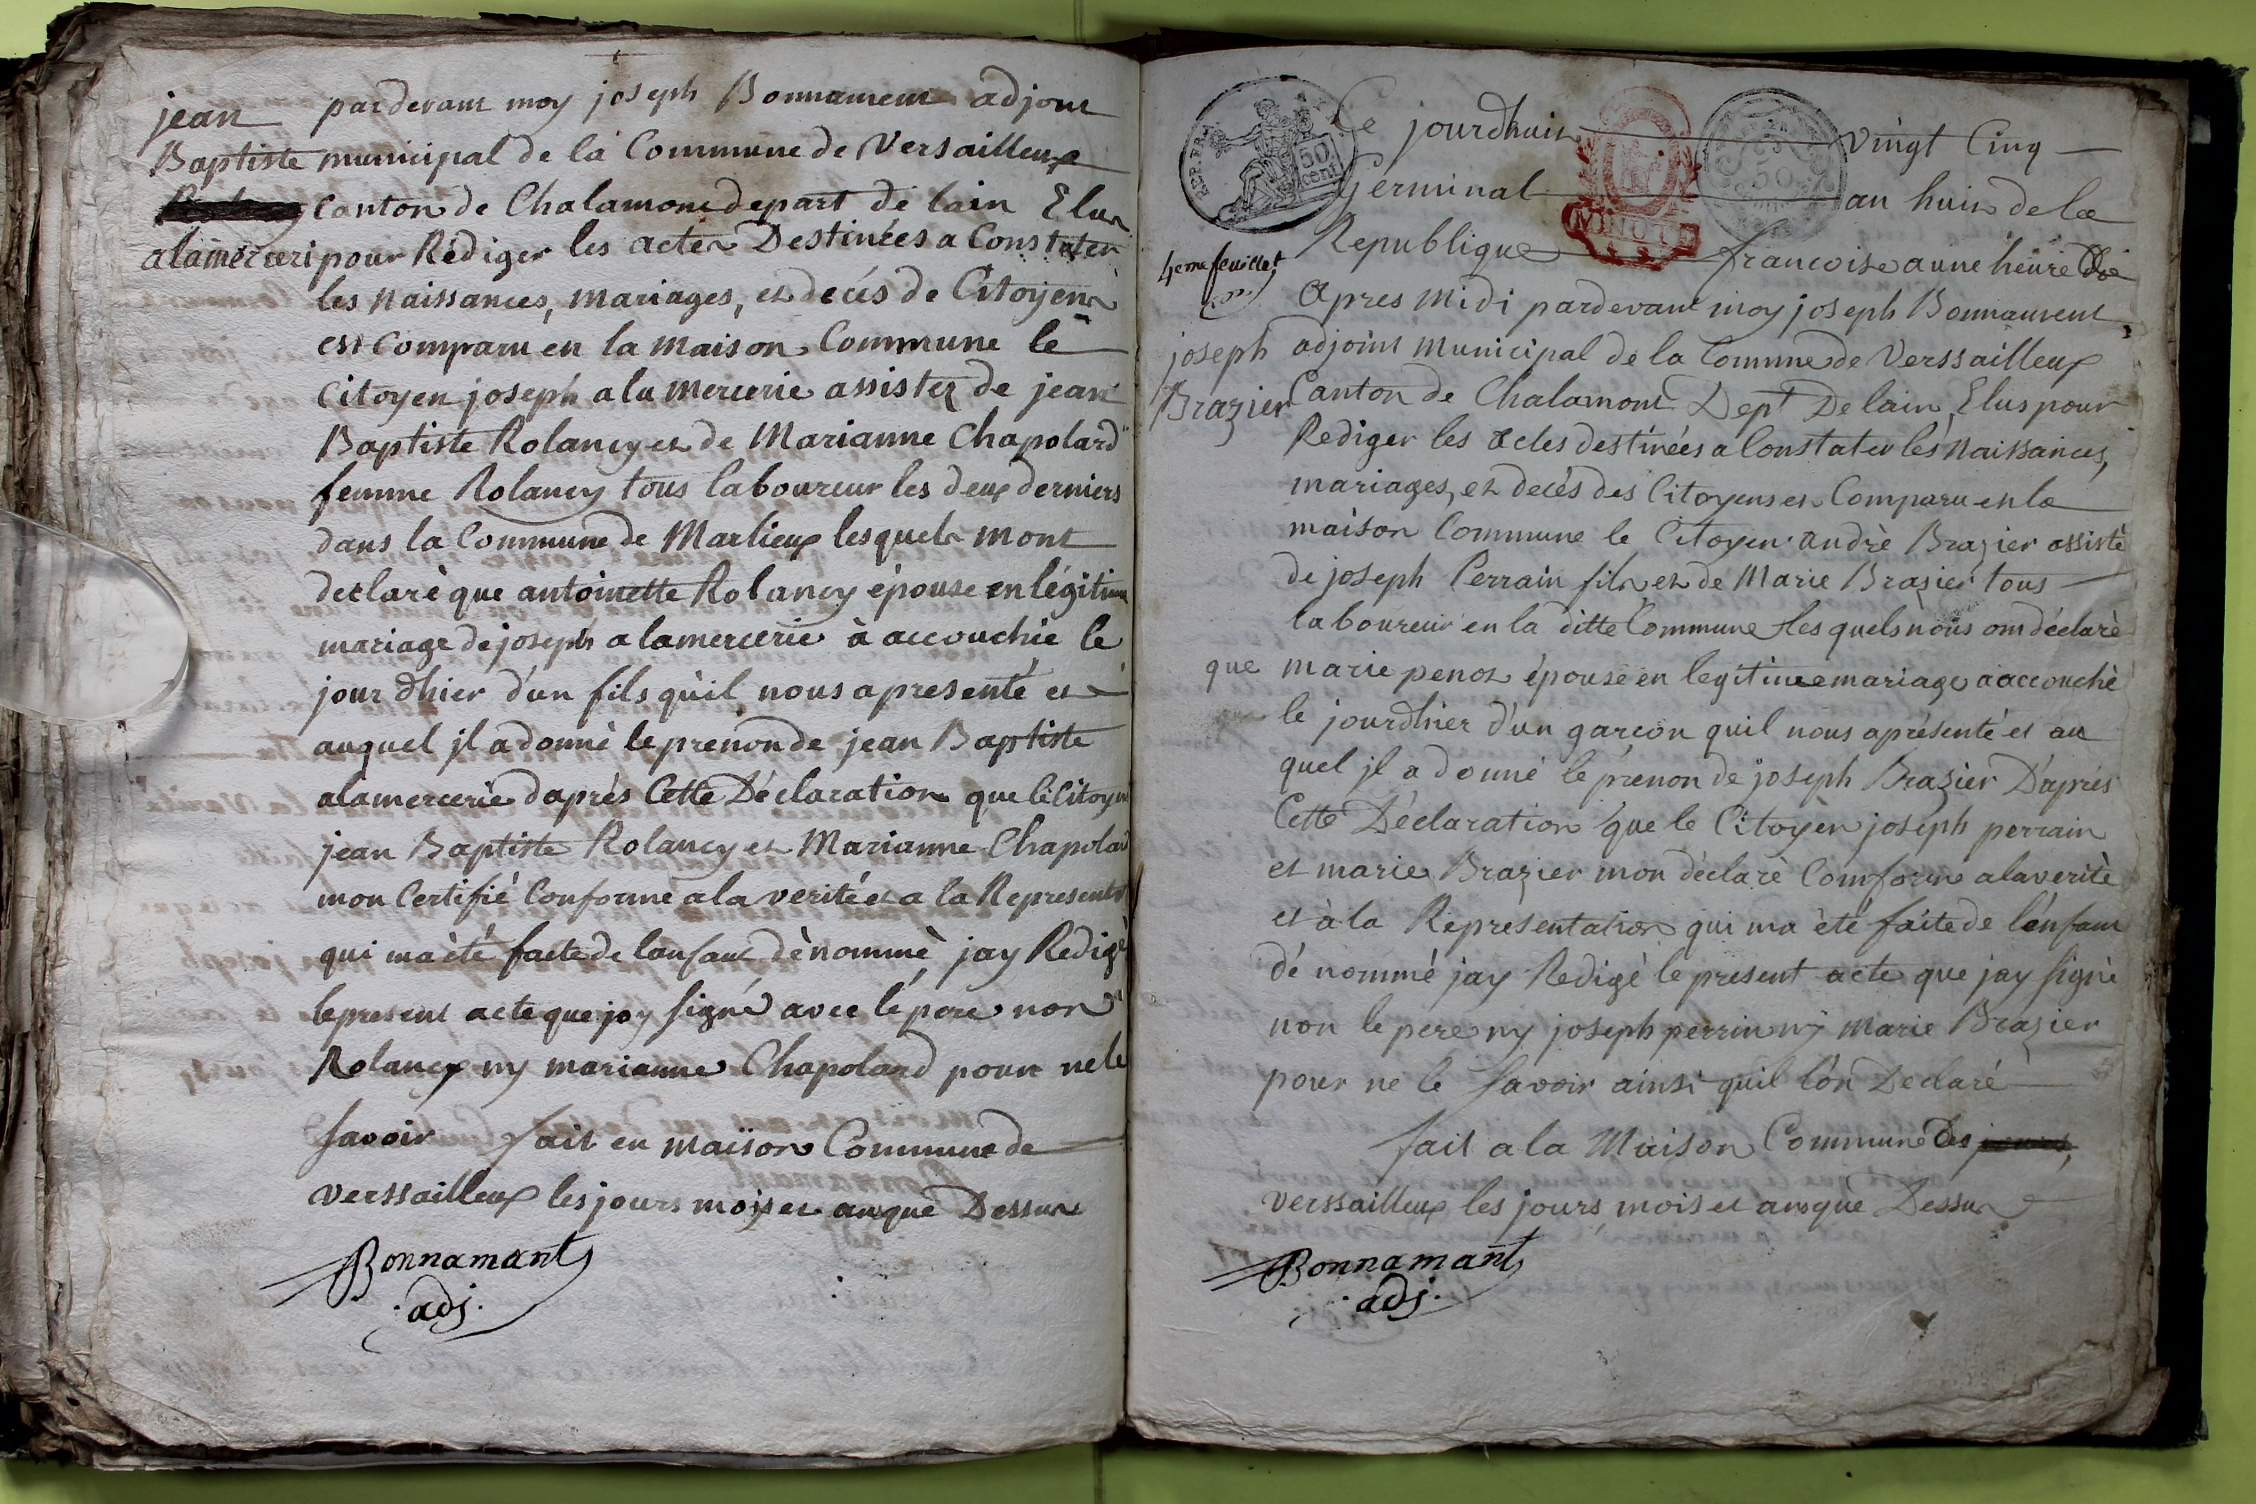 jean
Baptiste
alamerceri
pardevant moy joseph Bonnament adjoint
municipal de la Commune de Versailleux
Canton de Chalamont depart de lain Elus
pour Rédiger les actes Destinées a Constater
les Naissances, mariages, et decés de Citoyens
est Comparu en la maison Commune le
Citoyen joseph ala mercerie assistez de jean
Baptiste Rolancy et de Marianne Chapolard
femme Rolancy tous laboureur les deux derniers
dans la Commune de Marlieux lesquels mont
declaré que antoinette Rolancy épouse en légitime
mariage de joseph alamercerie à accouchie le
jour dhier d'un fils qu'il nous a presenté et
auquel jl a donné le prenon de jean Baptiste
alamercerie daprés Cette Déclaration que le Citoyen
jean Baptiste Rolancy et Marianne Chapolard
mon Certifié Conforme a la verité et a la Represent
qui ma été faite de lanfant dènommè jay Redigé
le present acte que jay signé avec le pere non
Rolancy ny marianne Chapolard pour ne le
savoir fait en maison Commune de
verssailleux les jours mois et anque Dessus
Bonnamant
adj.
REP. FRA.
50
cent
Ce jourdhuis vingt Cinq
Germinal an huit de la
MINUTE
Republique francoise a une heure de
4eme feuillet
joseph
Brazier
apres midi pardevant moy joseph Bonnament
adjoint municipal de la Commne de Verssailleux
Canton de Chalamont Dept De lain Elus pour
Rediger les actes destinées a Constater les Naissances,
mariages, et decés des Citoyens est Comparu en la
maison Commune le Citoyen andrè Brazier assistè
de joseph Perrain fils et de Marie Brazier tous
laboureur en la ditte Commune lesquels nous on déclarè
que marie penot épouse en legitime mariage a accouchè
le jourdhier d'un garcon quil nous a présenté et au
quel jl a donné le prenon de joseph Brazier D'aprés
Cette Déclaration que le Citoyen joseph perrain
et marie Brazier mon déclarè Comforme a la verité
et à la Représentation qui ma èté faite de l'enfant
dé nommé jay Redigé le present acte que jay signè
non le pere ny joseph perrin ny Marie Brazier
pour ne le savoir ainsi quil l'on Declaré
fait a la Maison Commune De
verssailleux les jours, mois et anque Dessus
Bonnamant
adj.